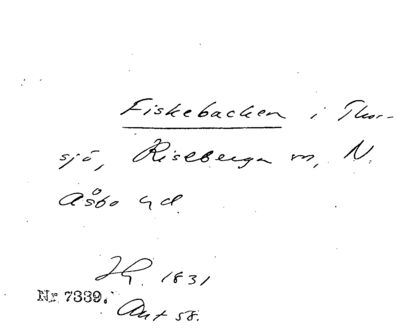 Fiskebacken i Thor-
sjö, Riseberga sn, N.
Åsbo hd.
Jh. 1831
Nr 7339. Akt 58.